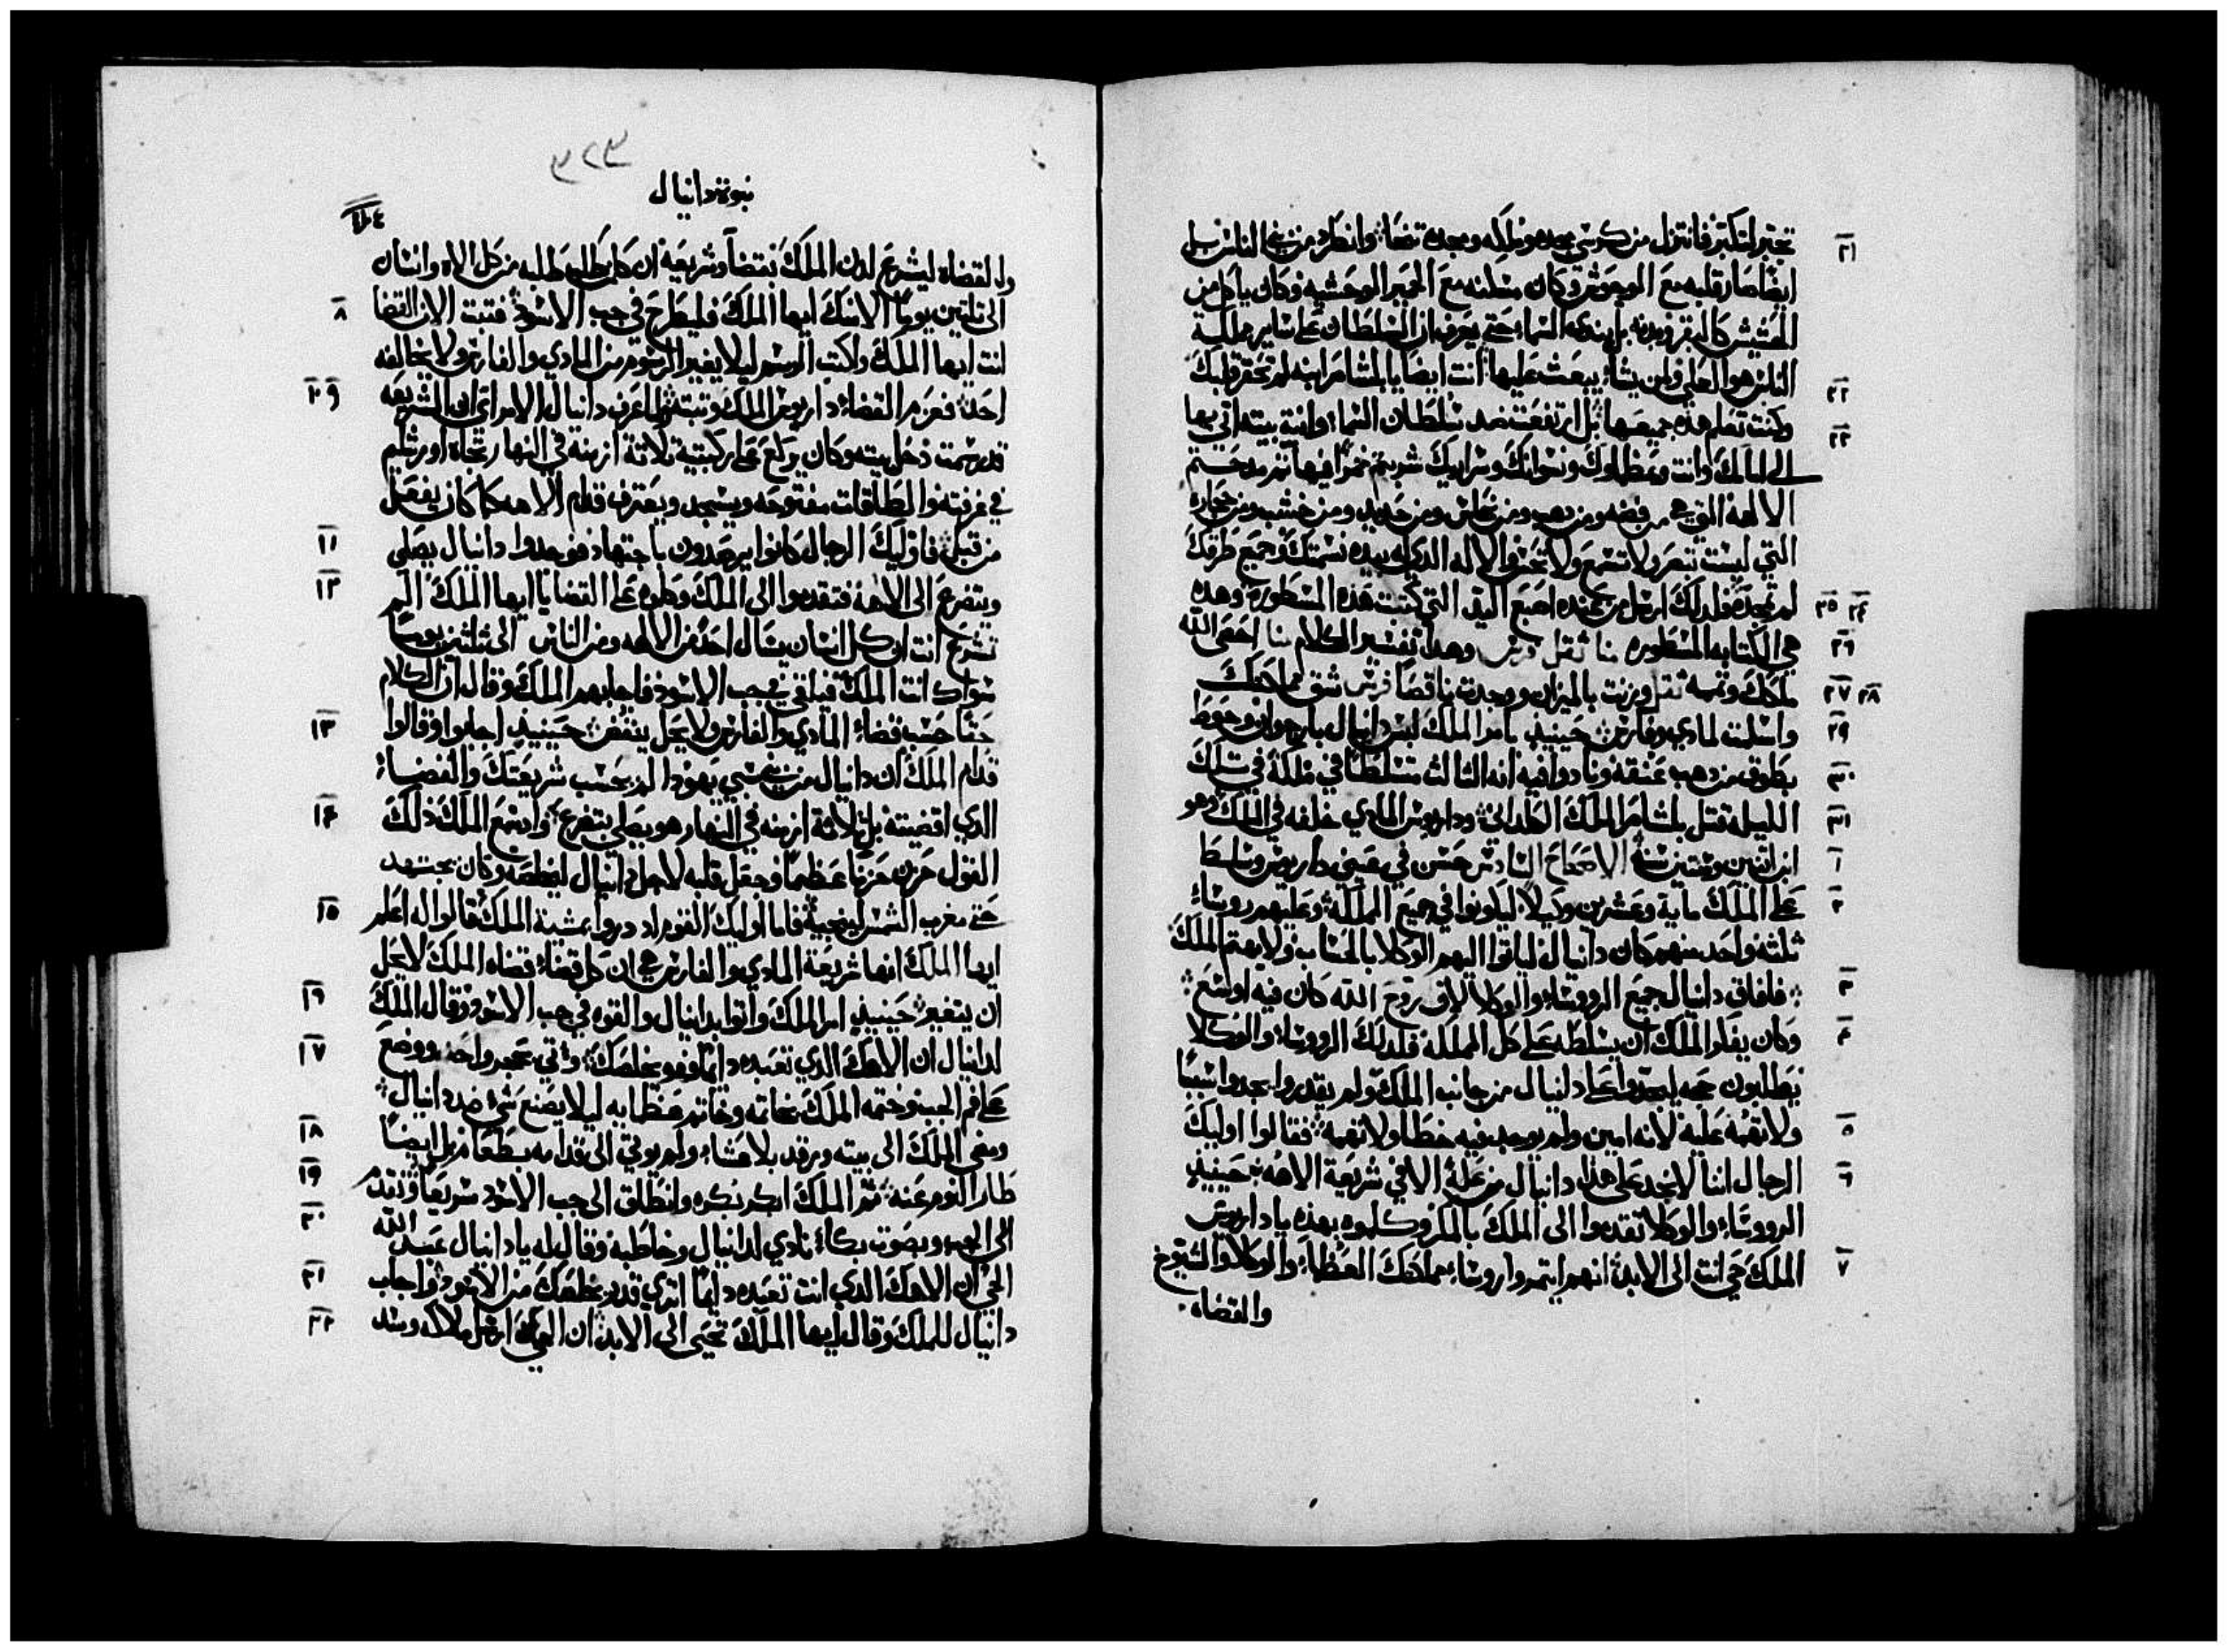 تجبر لتكبر فانتزل من كرسي مجده وملكه ومجده تنحا وانطرد من بني الناس بل
ايضا صار قلبه مع الوحوش وكان مسكنه مع الحمير الوحشيه وكان ياكل من
الحشيش كالبقر وبدنه بل بندى السماء حتى يعرف ان السلطان على ساير مملكة
الناس هو العلي ولمن يشاء يبعث عليها انت ايضا يا بلشاصر ابنه لم تحقر قلبك
وكنت تعلم هذه جميعها بل ارتفعت ضد سلطان السماء وانية بيته اتي بها
الى امامك وانت وعظماوك ونسوانك وسراريك شربتم خمرا فيها ثم مدحتم
الالهة التي هي من فضه ومن دهب ومن نحاس ومن حديد ومن خشب ومن حجاره
التي ليست تنظر ولا تسمع ولا تحس والاله الدي له بيده نسمتك وجميع طرقك
لم تمجده فلدلك ارسل من عنده اصبع اليد التي كتبت هذه المسطوره وهده
هي الكتابه المسطوره منا ثقل فرس وهدا تفسير الكلام منا احصى الله
ملكك وتممه ثقل وزنت بالميزان ووجدت ناقصا فرس شق مملكتك
واسلمت لمادي وفارس حينيذ بامر الملك لبس دانيال بارجوان وحوط
بطوق من دهب عنقه ونادوا فيه انه الثالث متسلطا في ملكه في تلك
الليله قتل بلشاصر الملك الكلداني وداريوس المادي خلفه في الملك وهو
ابن اثنين وستين سنة الاصحاح السادس حسن في عيني داريوس وسلط
على الملك ماية وعشرين وكيلا ليكونوا في جميع المملكة وعليهم روساء
ثلثه واحد منهم كان دانيال لياتوا اليهم الوكلا بالحساب ولا يهتم الملك
فافاق دانيال جميع الرووساء والوكلا لان روح الله كان فيه اوسع
وكان يفكر الملك ان يسلطه على كل المملكه فلدلك الرووساء والوكلا
يطلبون حجه ليجدوا على دانيال من جانب الملك ولم يقدروا يجدوا سببا
ولا تهمة عليه لانه امين ولم يوجد فيه خطا ولا تهمة فقالوا اوليك
الرجال اننا لا نجد على هذا دانيال من علة الا في شريعة الاهه حينيذ
الرووساء والوكلا تقدموا الى الملك بالمكر وكلموه بهذه يا داريوس
الملك حي انت الى الابد انهم ايتمروا روساء مملكتك العظماء والوكلا والشيوخ
والقضاه
٢١
٢٢
٢٣
٢٤ ٢٥
٢٦
٢٨ ٢٧
٢٩
٣٠
٣١
١
٢
٣
٤
٥
٦
٧
٣٢٣
نبوة دانيال
والقضاه ليشرع لدن الملك نقضا وشريعة ان كل طلبه من كل الاه وانسان
الى ثلاتين يوما الا منك ايها الملك فليطرح في جب الاسود فتبت الان القضا
انت ايها الملك واكتب الرسم ليلا يغير الرسوم من المادي والفارس ولا يخالفه
احد فعزم القضاء داريوس الملك وتبته فلما عرف دانيال الامر اي ان الشريعه
قد رسمت دخل بيته وكان يركع على ركبتيه تلاتة ازمنه في النهار تجاه اورشليم
في غرفته والطاقات مفتوحه ويسجد ويعترف قدام الاهه كما كان يفعل
من قبل فاوليك الرجال كانوا يرصدون باجتهاد فوجدوا دانيال يصلي
ويتضرع الى الاهه فتقدموا الى الملك وكلموه على القضايا ايها الملك الم
تشرع انت ان كل انسان يسال احد من الالهه ومن الناس الى ثلثين يوما
سواك انت الملك فيلقى في جب الاسود فاجابهم الملك وقال ان الكلام
حقا حسب قضاء المادي والفارس ولا يحل ينقض حينيذ اجابوا وقالوا
قدام الملك ان دانيال من بني سبي يهودا لم يحسب شريعتك والقضاء
الدي اقضيته بل تلاتة ازمنه في النهار هو يصلي بتضرع واد سمع الملك ذلك
القول حزن حزنا عظيما وجعل قلبه لاجل دانيال ليخلصه وكان يجتهد
حتى مغرب الشمس لينجيه فاما اوليك القوم اد دروا بمشية الملك قالوا له اعلم
ايها الملك انها شريعة المادي والفارس هي ان كل قضاء قضاه الملك لا يحل
ان يتغير حينيذ امر الملك واتوا بدانيال والقوه في جب الاسود وقال الملك
لدانيال ان الاهك الدي تعبده دايما فهو يخلصك واتي بحجر واحد ووضع
على فم الجب وختمه الملك بخاتمه وخاتم عظمايه ليلا يصنع شي ضد دانيال
ومضى الملك الى بيته ورقد بلا عشاء ولم يوتي الى قدامه بطعام بل ايضا
طار النوم عنه ثم الملك ابكر بكره وانطلق الى جب الاسود سريعا وتقدم
الى الجب وبصوت بكاء نادي لدانيال وخاطبه وقال له يا دانيال عبد الله
الحي ان الاهك الدي انت تعبده دايما اترى قدر يخلصك من الاسود فاجاب
دانيال للملك وقال ايها الملك تحيى الى الابد ان الهي ارسل ملاكه وسد
٨
١٠ ٩
١١
١٢
١٣
١٤
١٥
١٦
١٧
١٨
١٩
٢٠
٢١
٢٢